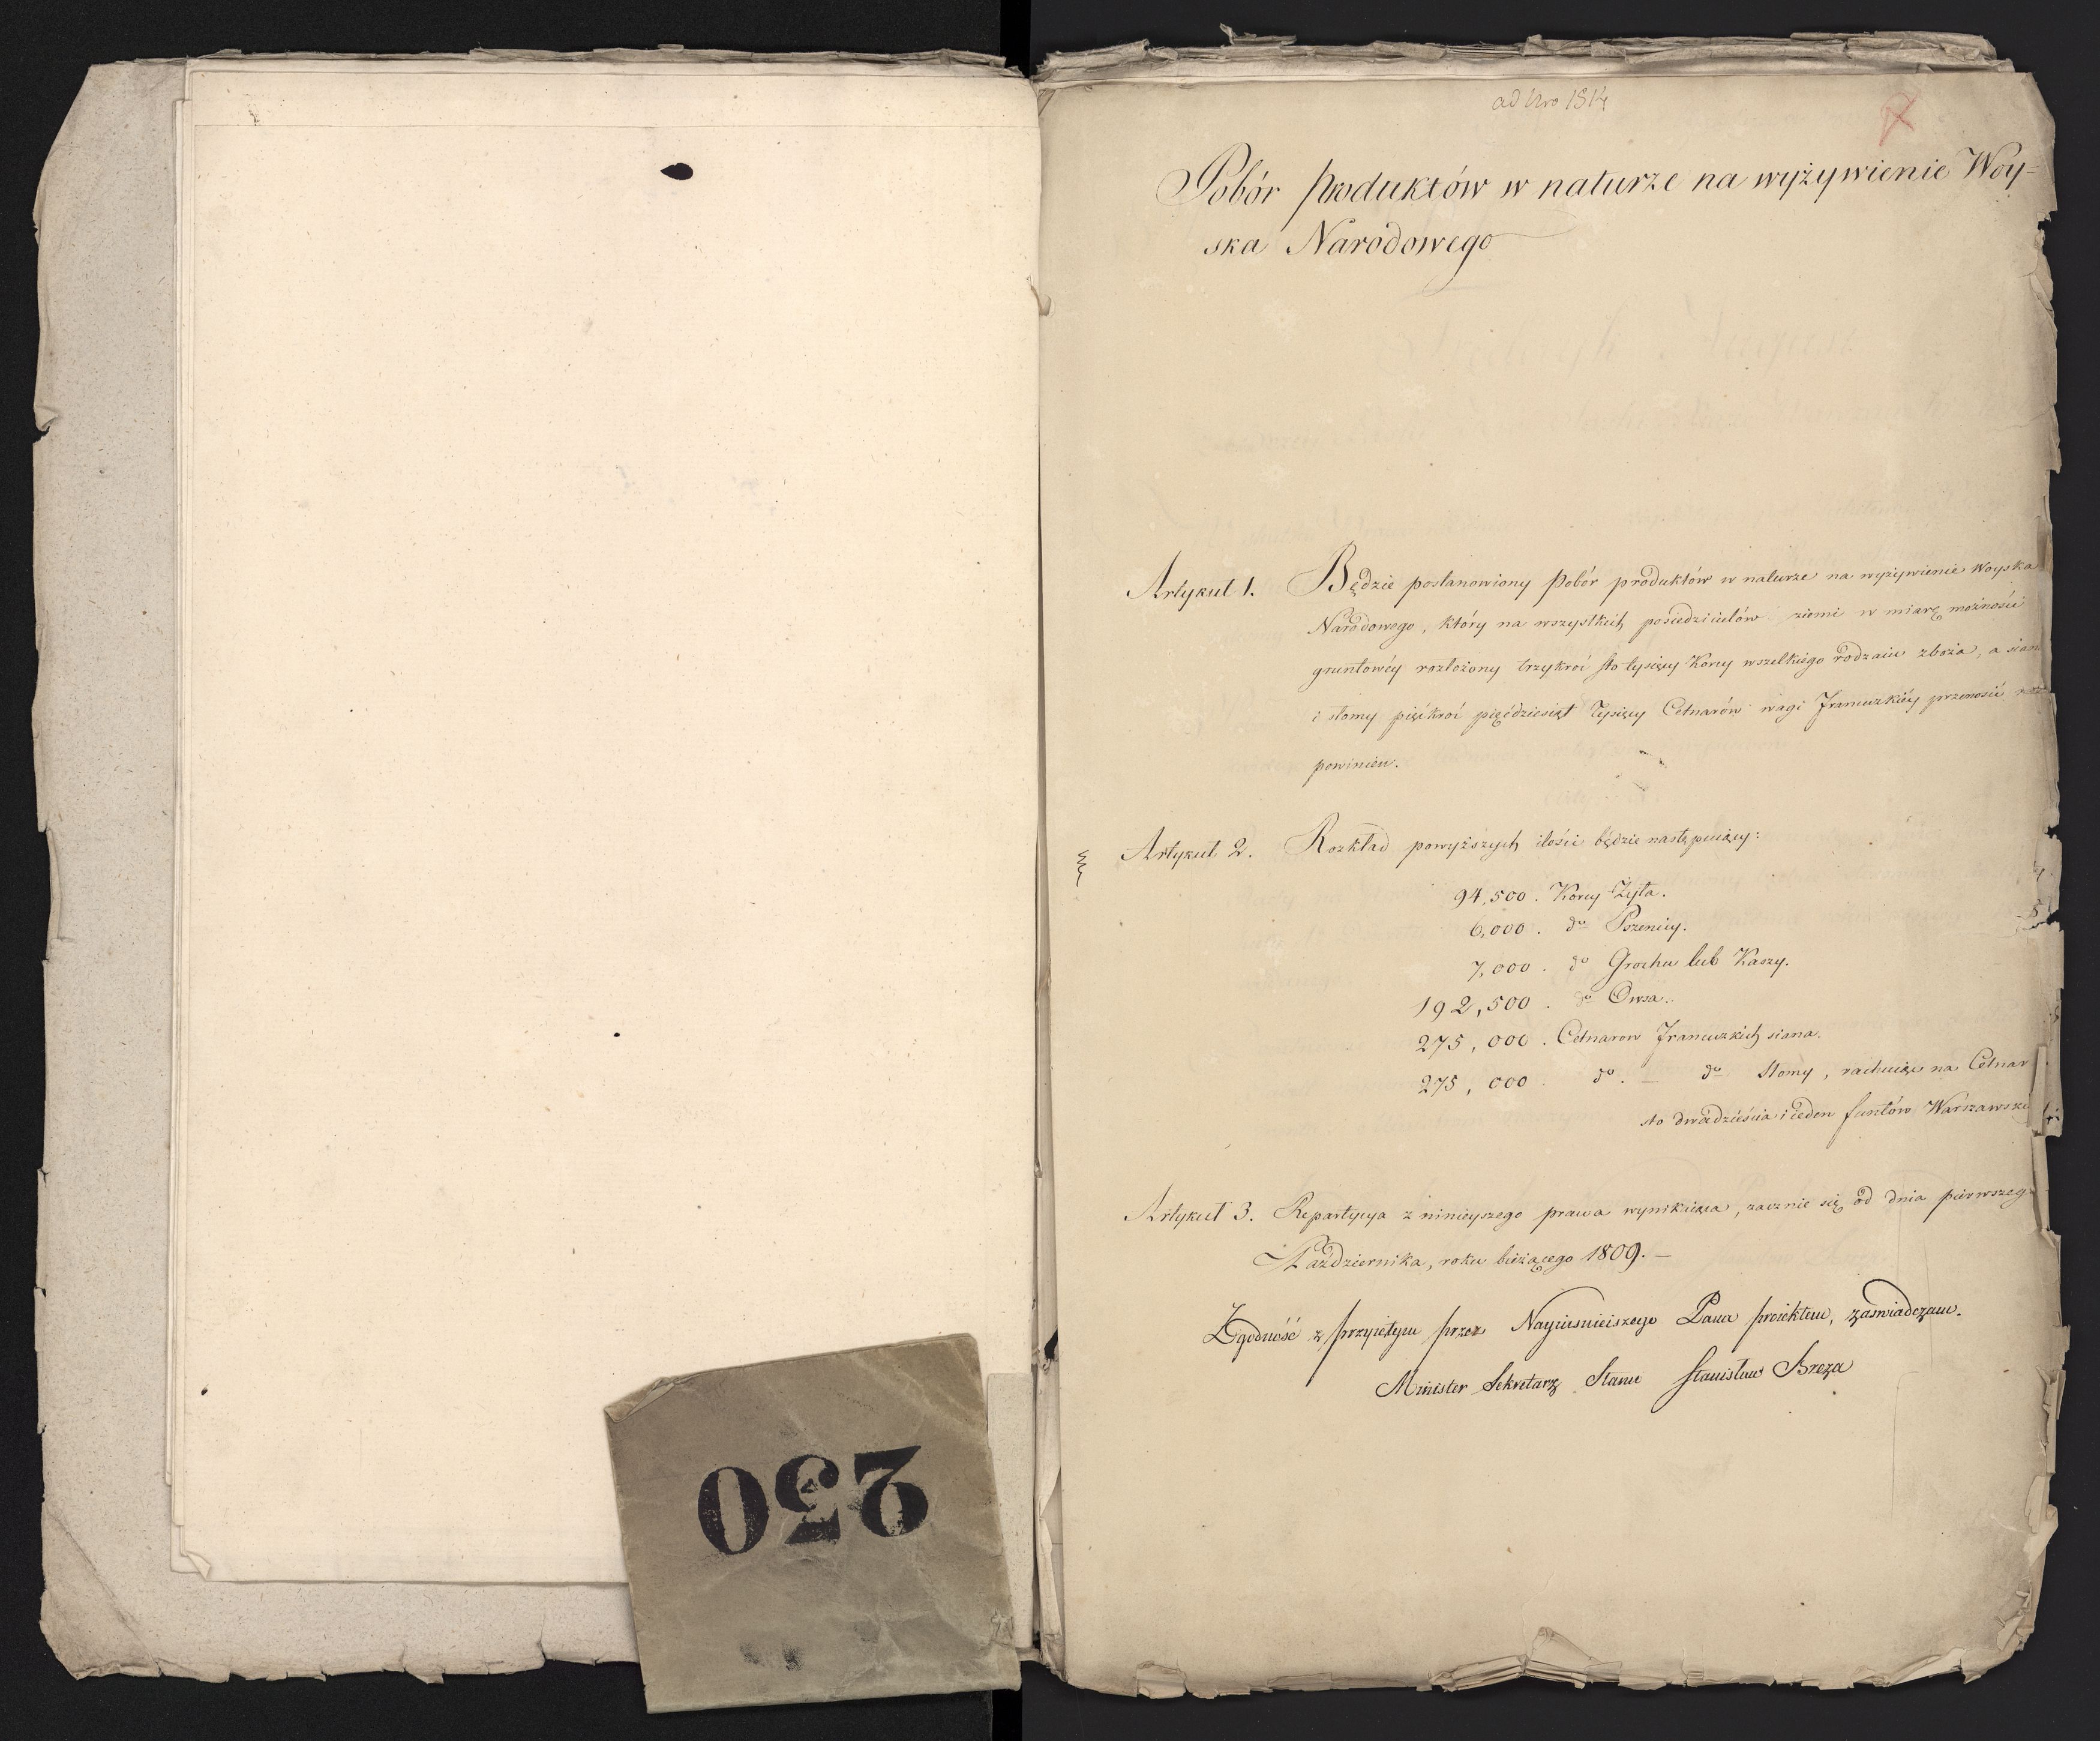 ad Nro 1814
7
Pobór produktów w naturze na wyżywienie Woy-
ska Narodowego
Artykuł 1. Będzie postanowiony Pobór produktów w naturze na wyżywienie Woyska
Narodowego, który na wszystkich posiedzicielów ziemi w miarę możności
gruntowéy rozłożony trzykroć sto tysięcy Korcy wszelkiego rodzaiu zboża, a siana
i słomy pięćkroć pięćdziesiąt Tysięcy Cetnarów wagi Francuzkiéy przenosić
powinien.
Artykuł 2. Rozkład powyższych ilości będzie następuiący:
94,500. Korcy Żyta.
6,000. do Pszenicy.
7,000. do Grochu lub Kaszy.
192,500. do Owsa.
275,000. Cetnarow Francuzkich siana.
275,000 do. — do Słomy, rachuiąc na Cetnar
sto dwadzieścia i ieden funtów Warszawski
Artykuł 3. Repartycya z ninieyszego prawa wynikaiąca, zacznie się od dnia pierwszego
Października, roku bieżącego 1809. —
Zgodność z przyiętym przez Nayiaśnieiszego Pana proiektem, zaświadczam.
Minister Sekretarz Stanu Stanisław Breza
230